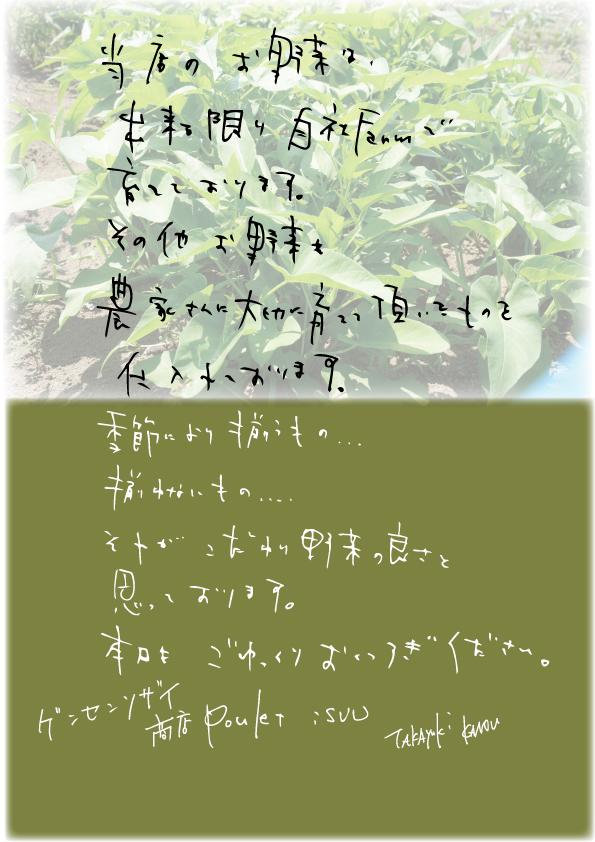 当店のお野菜は、
出来る限り自社Farmで
育てております。
その他お野菜も
農家さんに大切に育てて頂いたものを
仕入れております。
季節により揃うもの…
揃わないもの....
それがこだわり野菜の良さと
思っております。
本日も ごゆっくりおくつろぎください。
ゲンセンザイ
商店 Poulet